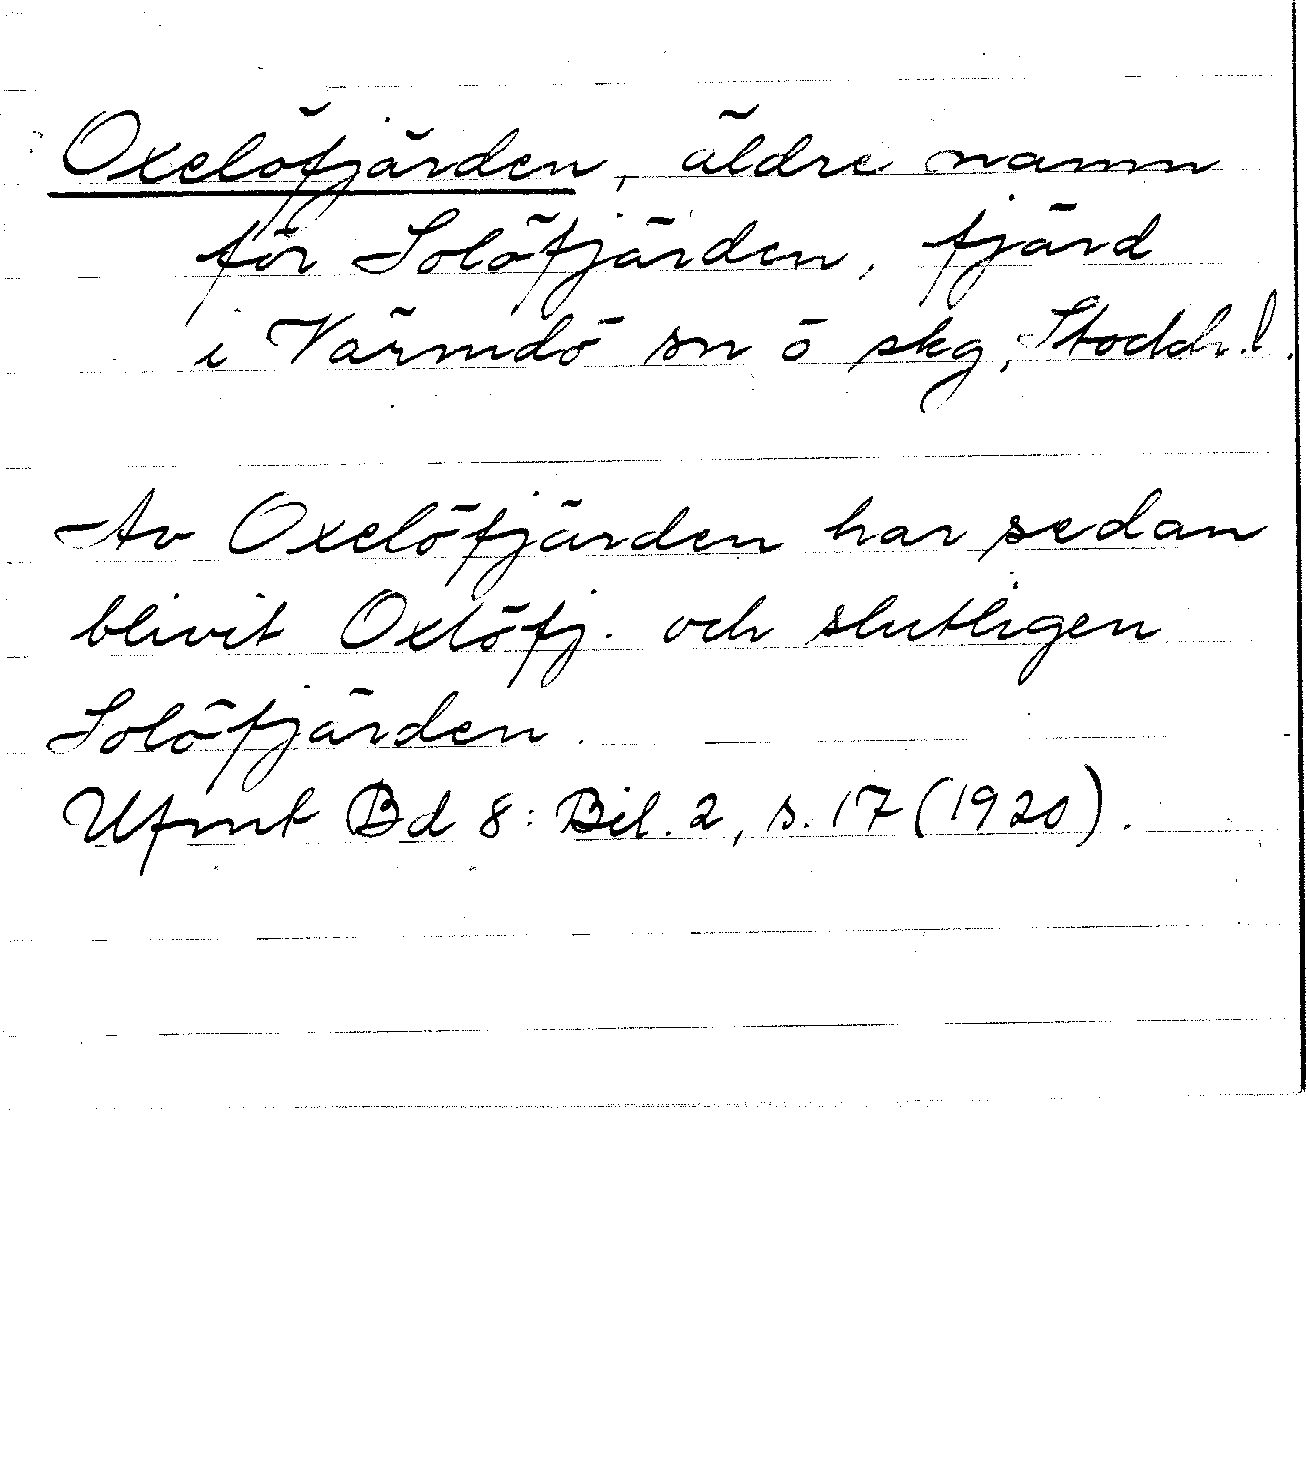 Oxelöfjärden, äldre namn
för Solöfjärden, fjärd
i Värmdö sn ö skg, Stockh. l.
Av Oxelöfjärden har sedan
blivit Oxlöfj. och slutligen
Solöfjärden.
Ufmt Bd 8: Bil. 2, s. 17 (1920).